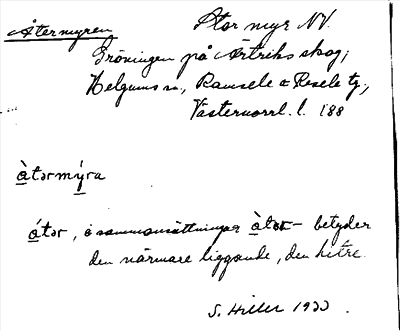 Återmyren Ätor myr NV.
Gröningen på Ärtriks skog;
Helgums sn, Ramsele o Resele tg.,
Västernorrl. l. 188
àtərmýra
átər, i sammansättningar àtər- betyder
den närmare liggande, den hitre.
S. Hiller 1933